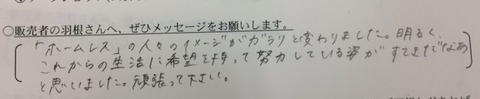 ○販売者の羽根さんへ、ぜひメッセージをお願いします。
「ホームレス」の人々のイメージがガラリと変わりました。明るく、
これからの生活に希望を持って努力している姿がすてきだなあ
と思いました。頑張って下さい。